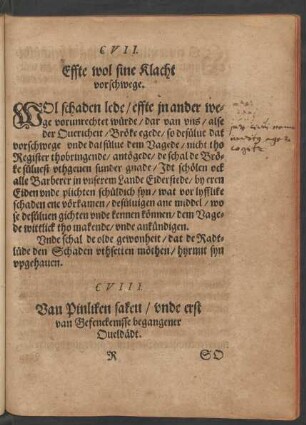 CVII.
Effte wol sine Klacht
vorschwege.
WOl schaden lede / effte jn ander we-
ge vorunrechtet würde / dar van vns / alse
der Ouericheit / Bröke egede / so desülue dat
vorschwege vnde dat sülue dem Vagede / nicht tho
Register thobringende / antögede / de schal de Brö-
ke süluest vthgeuen sunder gnade / Jdt schölen ock
alle Barberer in vnserem Lande Eiderstede / by eren
Eiden vnde plichten schüldich syn / wat vor lyfflike
schaden ene vörkamen / desüluigen ane middel / wo
se desüluen gichten vnde kennen können / dem Vage-
de wittlick tho makende / vnde ankündigen.
Vnde schal de olde gewonheit / dat de Radt-
lüde den Schaden vthsetten möthen / hyrmit syn
vpgehauen.
CVIII.
Van Pinliken saken / vnde erst
van Gefenckenisse begangener
Oueldädt.
R
SO